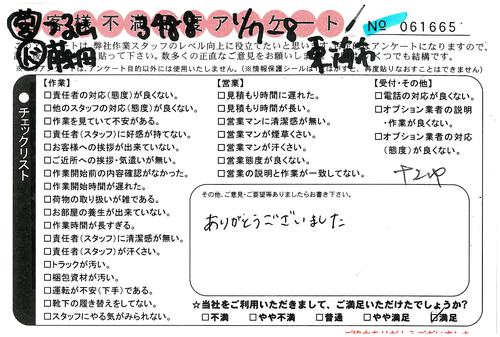 お客様不満足度アンケート
№ 061665
は、弊社作業スタッフのレベル向上に役立てたいと思い
アンケートになりますので、
貼って下さい。数多くの正直なご意見をお願いし
くつでも結構です。
アンケート目的以外には使用いたしません。(※情報保護シール
再度貼りなおすことはできません)
チェックリスト
【作業】
□責任者の対応(態度)が良くない。
□他のスタッフの対応(態度)が良くない。
□作業を見ていて不安がある。
□責任者(スタッフ)に好感が持てない。
□お客様への挨拶が出来ていない。
□ご近所への挨拶・気遣いが無い。
□作業開始前の内容確認がなかった。
□作業開始時間が遅れた。
□荷物の取り扱いが雑である。
□お部屋の養生が出来ていない。
□作業時間が長すぎる。
□責任者(スタッフ)に清潔感が無い。
□責任者(スタッフ)が汗くさい。
□トラックが汚い。
□梱包資材が汚い。
□運転が不安(下手)である。
□靴下の履き替えをしてない。
□スタッフにやる気がみられない。
【営業】
□見積もり時間に遅れた。
□見積もり時間が長い。
□営業マンに清潔感が無い。
□営業マンが煙草くさい。
□営業マンが汗くさい。
□営業態度が良くない。
□営業の説明と作業が一致してない。
【受付・その他】
□電話の対応が良くない。
□オプション業者の説明
・作業が良くない。
□オプション業者の対応
(態度)が良くない。
その他、ご意見・ご要望等ありましたらお書き下さい。
ありがとうございました
☆当社をご利用いただきまして、ご満足いただけたでしょうか?
□不満 □やや不満 □普通 □やや満足 ☑満足